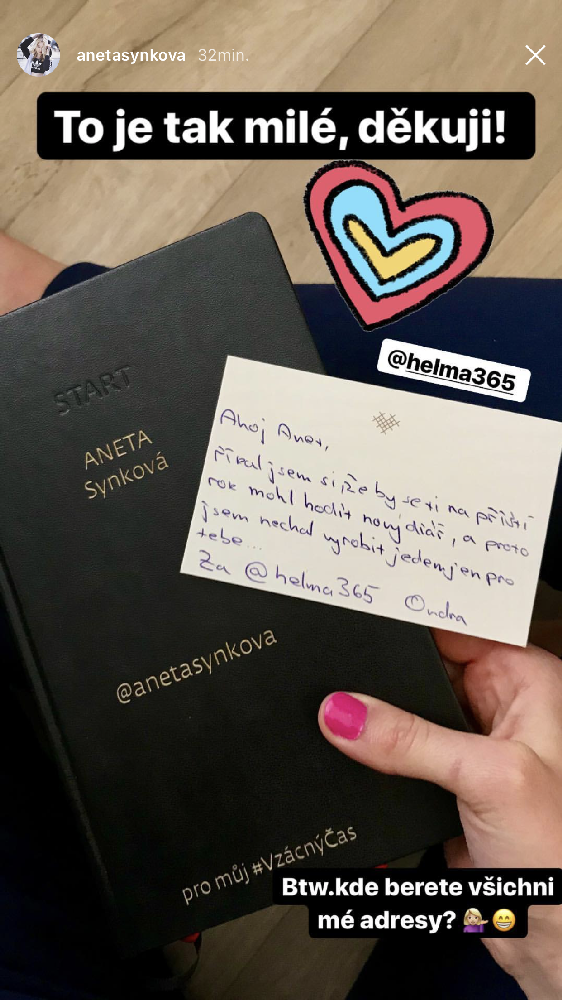 anetasynkova 32min.
To je tak milé, děkuji!
@helma365
START
ANETA
Synková
Ahoj Anet,
říkal jsem si, že by se ti na příští
rok mohl hodit nový diář, a proto
jsem nechal vyrobit jeden jen pro
tebe...
Za @helma365 Ondra
@anetasynkova
pro můj #VzácnýČas
Btw.kde berete všichni
mé adresy?